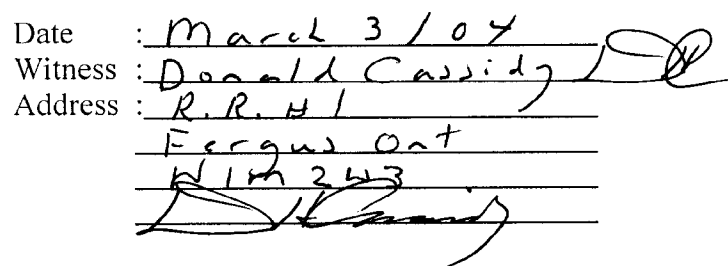 Date : March 3 / 04
Witness : Donald Cassidy
Address : R.R. #1
Fergus Ont
N1M 2W3